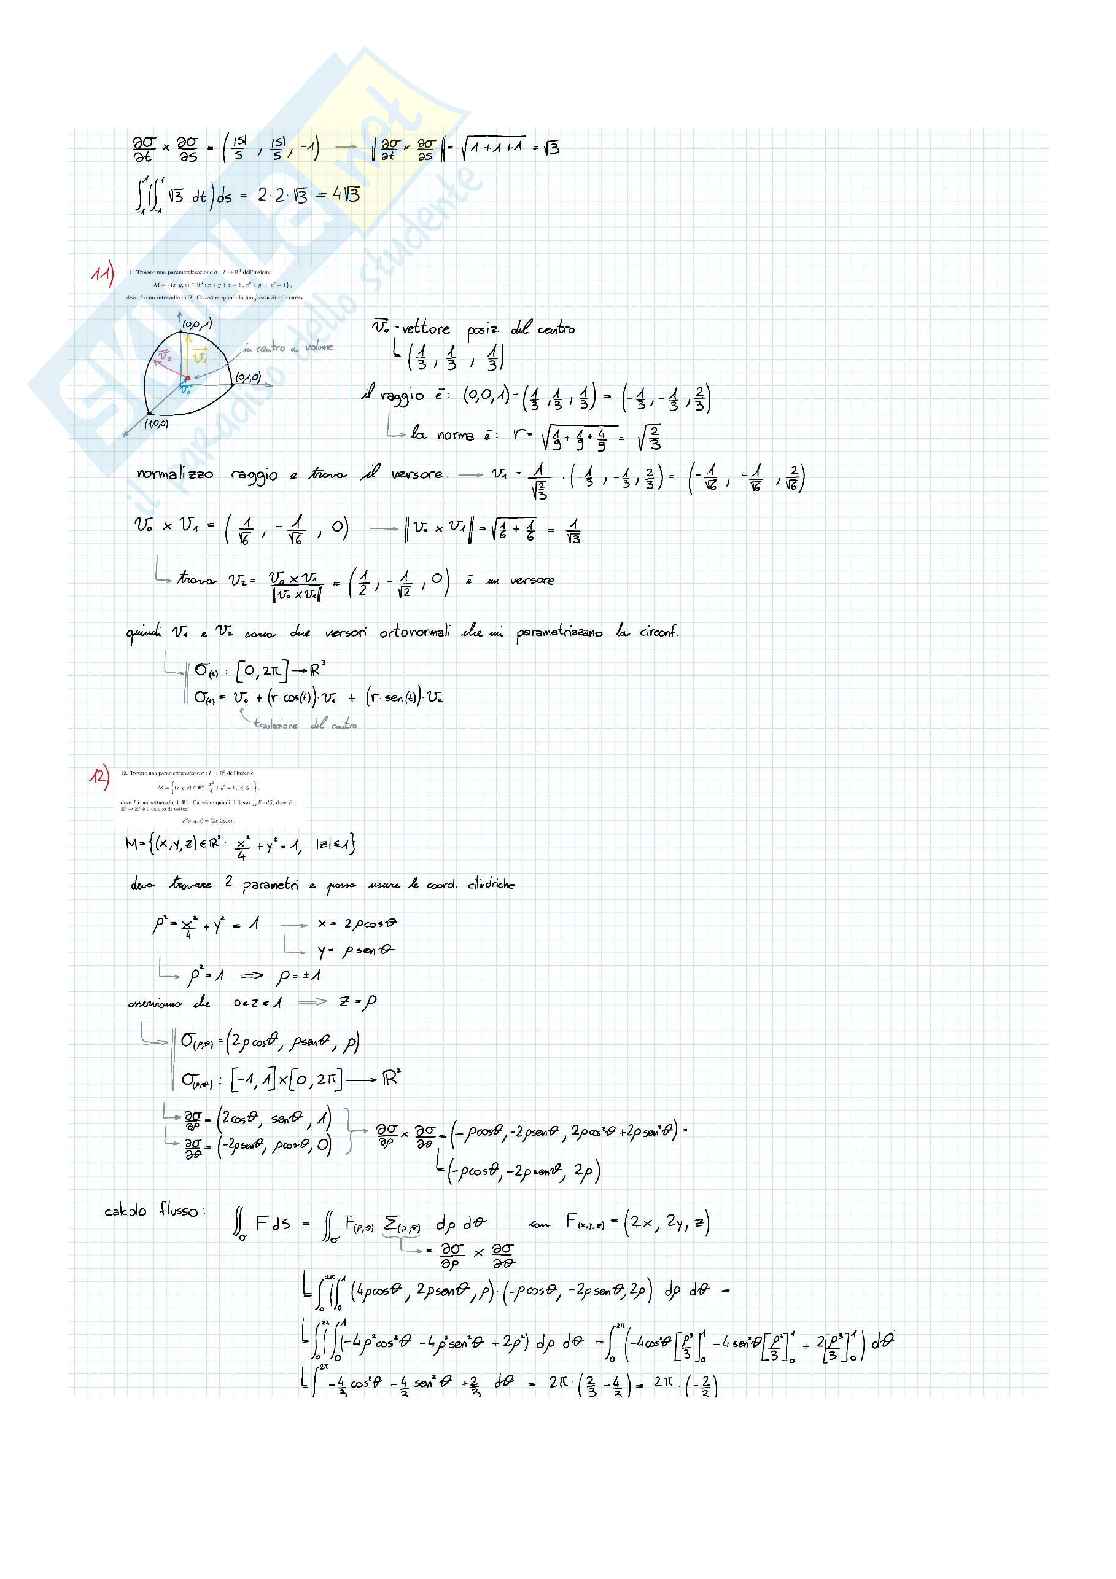 ∂σ/∂t × ∂σ/∂s = (|s|/s , |s|/s , -1) → ‖∂σ/∂t × ∂σ/∂s‖ = √(1+1+1) = √3
∫₋₁¹(∫₋₁¹ √3 dt)ds = 2·2·√3 = 4√3
11)
(0,0,1)
(0,1,0)
(1,0,0)
v₀ = vettore posiz del centro
(1/3 , 1/3 , 1/3)
il raggio è: (0,0,1)-(1/3, 1/3, 1/3) = (-1/3, -1/3, 2/3)
la norma è: r = √(1/9 + 1/9 + 4/9) = √(2/3)
normalizzo raggio e trovo il versore → v₁ = 1/√(2/3) · (-1/3, -1/3, 2/3) = (-1/√6 , -1/√6 , 2/√6)
v₀ × v₁ = (1/√6 , -1/√6 , 0) → ‖v₀ × v₁‖ = √(1/6 + 1/6) = 1/√3
trovo v₂ = v₀ × v₁/‖v₀ × v₁‖ = (1/2 , -1/√2 , 0) è un versore
quindi v₁ e v₂ sono due versori ortonormali che mi parametrizzano la circonf.
σ(t) : [0, 2π] → R³
σ(t) = v₀ + (r cos(t))·v₁ + (r·sen(t))·v₂
traslazione del centro
12)
M={(x,y,z)∈R³: x²/4 + y² = 1, |z|≤1}
devo trovare 2 parametri e posso usare le coord. cilidriche
ρ² = x²/4 + y² = 1 → x = 2ρcosθ
y = ρsenθ
ρ² = 1 ⟹ ρ = ±1
osserviamo che 0≤z≤1 ⟹ z = ρ
σ(ρ,θ) = (2ρcosθ, ρsenθ, ρ)
σ(ρ,θ) : [-1, 1]×[0, 2π] → R³
∂σ/∂ρ = (2cosθ, senθ, 1)
∂σ/∂θ = (-2ρsenθ, ρcosθ, 0)
∂σ/∂ρ × ∂σ/∂θ = (-ρcosθ, -2ρsenθ, 2ρcos²θ + 2ρsen²θ) =
(-ρcosθ, -2ρsenθ, 2ρ)
calcolo flusso: ∬σ F ds = ∬σ F(ρ,θ) Σ(ρ,θ) dρ dθ con F(x,y,z) = (2x, 2y, z)
= ∂σ/∂ρ × ∂σ/∂θ
∫₀²π∫₀¹ (4ρcosθ, 2ρsenθ, ρ)·(-ρcosθ, -2ρsenθ, 2ρ) dρ dθ =
∫₀²π∫₀¹ (-4ρ²cos²θ - 4ρ²sen²θ + 2ρ²) dρ dθ = ∫₀²π (-4cos²θ [ρ³/3]₀¹ - 4sen²θ [ρ³/3]₀¹ + 2[ρ³/3]₀¹) dθ
∫₀²π -4/3 cos²θ - 4/3 sen²θ + 2/3 dθ = 2π·(2/3 - 4/3) = 2π·(-2/3)
SKUOLA.net
il paradiso dello studente